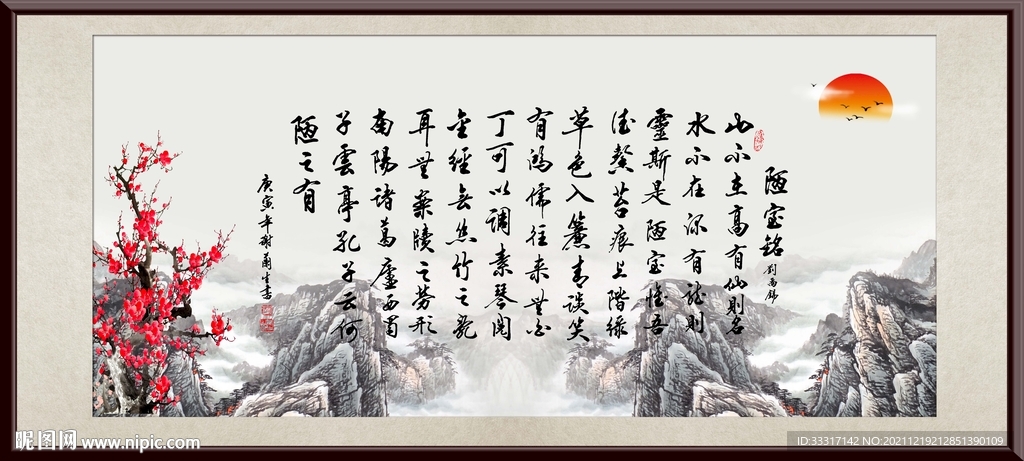 陋室銘
劉禹錫
山不在高有仙則名
水不在深有龍則
靈斯是陋室惟吾
德馨苔痕上階綠
草色入簾青談笑
有鴻儒往来無白
丁可以調素琴閱
金經無丝竹之亂
耳無案牘之劳形
南陽諸葛廬西蜀
子雲亭孔子云何
陋之有
庚寅年謝
昵图网 www.nipic.com
ID:33317142 NO:20211219212851390109